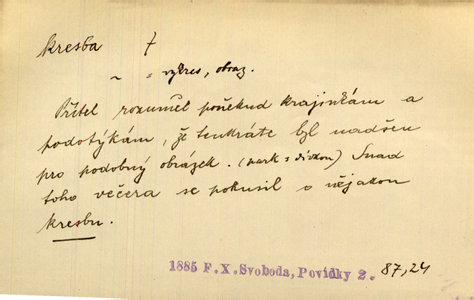 kresba f
~ = výkres, obraz.
Přítel rozuměl poněkud krajinkám a
podotýkám, že tenkráte byl nadšen
pro podobný obrázek. (park s dívkou) Snad
toho večera se pokusil o nějakou
kresbu.
1885 F.X.Svoboda, Povídky 2. 87,24